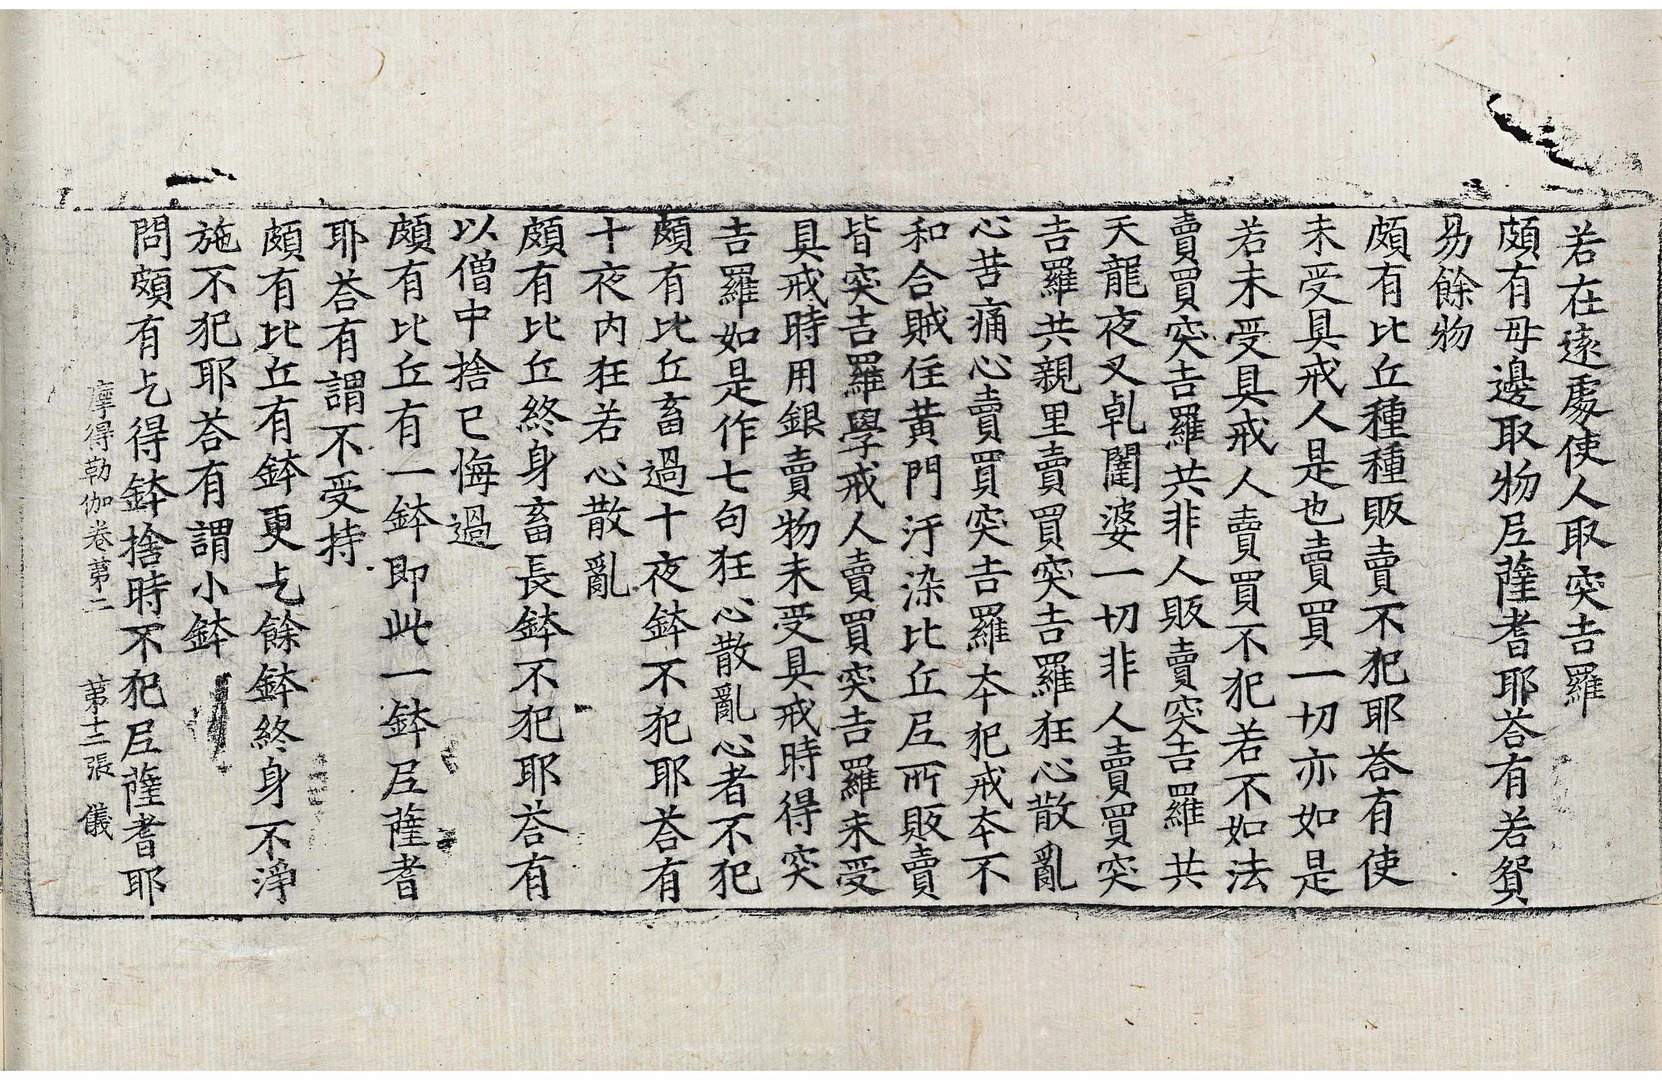 若在遠處使人取突吉羅
頗有母邊取物尼薩耆耶荅有若貿
易餘物
頗有比丘種種販賣不犯耶荅有使
未受具戒人是也賣買一切亦如是
若未受具戒人賣買不犯若不如法
賣買突吉羅共非人販賣突吉羅共
天龍夜叉乹闥婆一切非人賣買突
吉羅共親里賣買突吉羅狂心散亂
心苦痛心賣買突吉羅本犯戒本不
和合賊住黃門汙染比丘尼所販賣
皆突吉羅學戒人賣買突吉羅未受
具戒時用銀賣物未受具戒時得突
吉羅如是作七句狂心散亂心者不犯
頗有比丘畜過十夜鉢不犯耶荅有
十夜內狂若心散亂
頗有比丘終身畜長鉢不犯耶荅有
以僧中捨已悔過
頗有比丘有一鉢即此一鉢尼薩耆
耶荅有謂不受持
頗有比丘有鉢更乞餘鉢終身不淨
施不犯耶荅有謂小鉢
問頗有乞得鉢捨時不犯尼薩耆耶
摩得勒伽卷第二 第十二張 儀